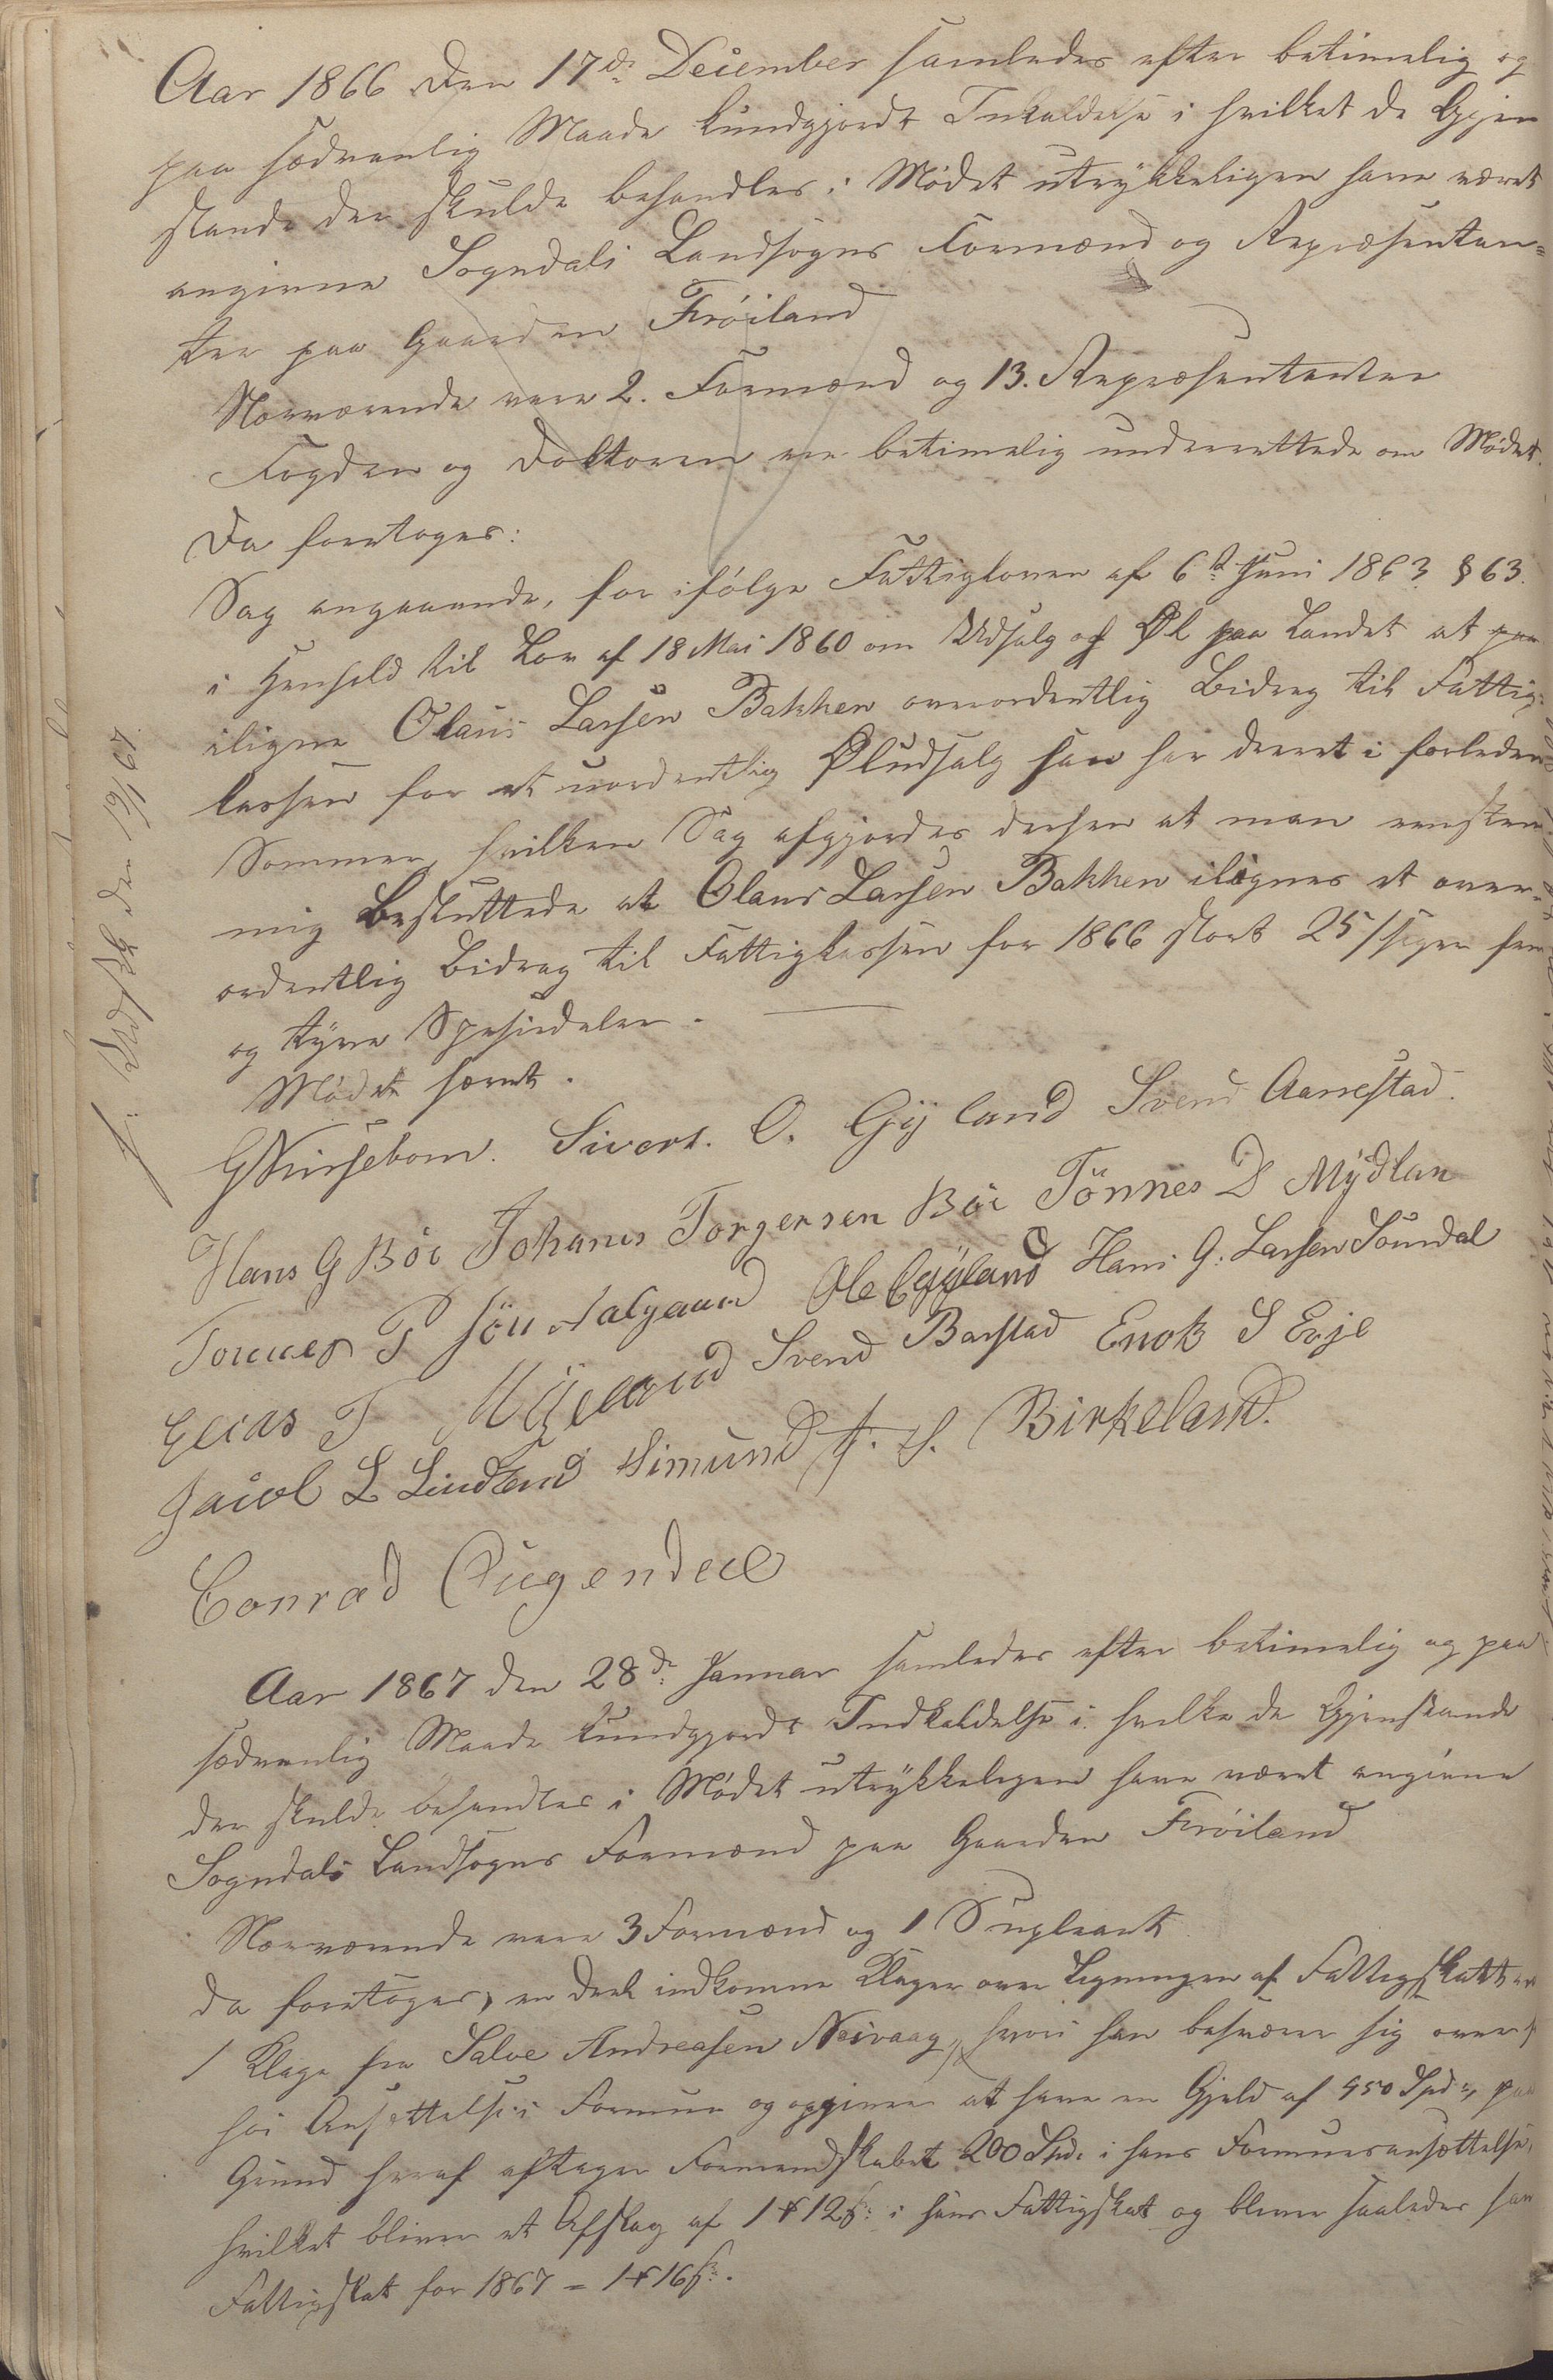 Aar 1866 den 17de December samledes efter betimelig og
paa sædvanlig Maade kundgjordt Inkaldelse i hvilket de Gjen
stande der skulde behandles i Mødet utrykkeligen have været
angivne Sogndals Landsogns Formænd og Repræsentan=
ter paa Gaarden Frøiland
Nærværende vare 2. Formænd og 13. Repræsentanter
Fogden og Doktoren ere betimelig underrettede om Mødet.
Da foretoges:
Sag angaaende, for ifølge Fattigloven af 6te Juni 1863 § 63.
i Henhold til Lov af 18 Mai 1860 om Udsalg af Øl paa Landet at paa
iligne Olaus Larsen Bakken overordentlig Bidrag til Fattig=
kassen for et uordentlig Øludsalg han har drevet i forleden
Sommer, hvilken Sag afgjordes derhen at man eenstem
mig Besluttede at Olaus Larsen Bakken ilignes et over=
ordentlig Bidrag til Fattigkassen for 1866 stort 25/ siger fem
og tyve Spesiedaler.
Mødet hævet.
Sivert. O. Gyland Svend Aarrestad.
Hans G Böe Johanes Torgersen Böe Tönnes D Mydlan
Tonnes P Jön Dalgaard Ole Gyland Hans G. Larsen Soundal
Elias T Mydland Svend Barstad Enok S Evje
Jacob L Lindland Simund T. S. Birkeland.
Conrad Augendeel
Aar 1867 den 28de Januar samledes efter betimelig og paa
sædvanlig Maade kundgjordt Indkaldelse i hvilke de Gjenstande
der skulde behandles i Mødet utrykkeligen have været angivne
Sogndals Landsogns Formænd paa Gaarden Frøiland
Nærværende vare 3 Formænd og 1 Supleant
da foretoges, en deel indkomne Klager over Ligningen af Fattigskatten
1 Klage fra Salve Andreasen Nesvaag, hvori han besværer sig over for
høi Ansættelse i Formue og opgiver at have en Gjeld af 950 Spd, paa
Grund heraf aftager Formandskabet 200 Spd. i hans Formuesansættelse,
hvilket bliver et Afslag af 1 ort 12 s: i hans Fattigskat og bliver saaledes han
Fattigskat for 1867 = 1 ort 16 s:.